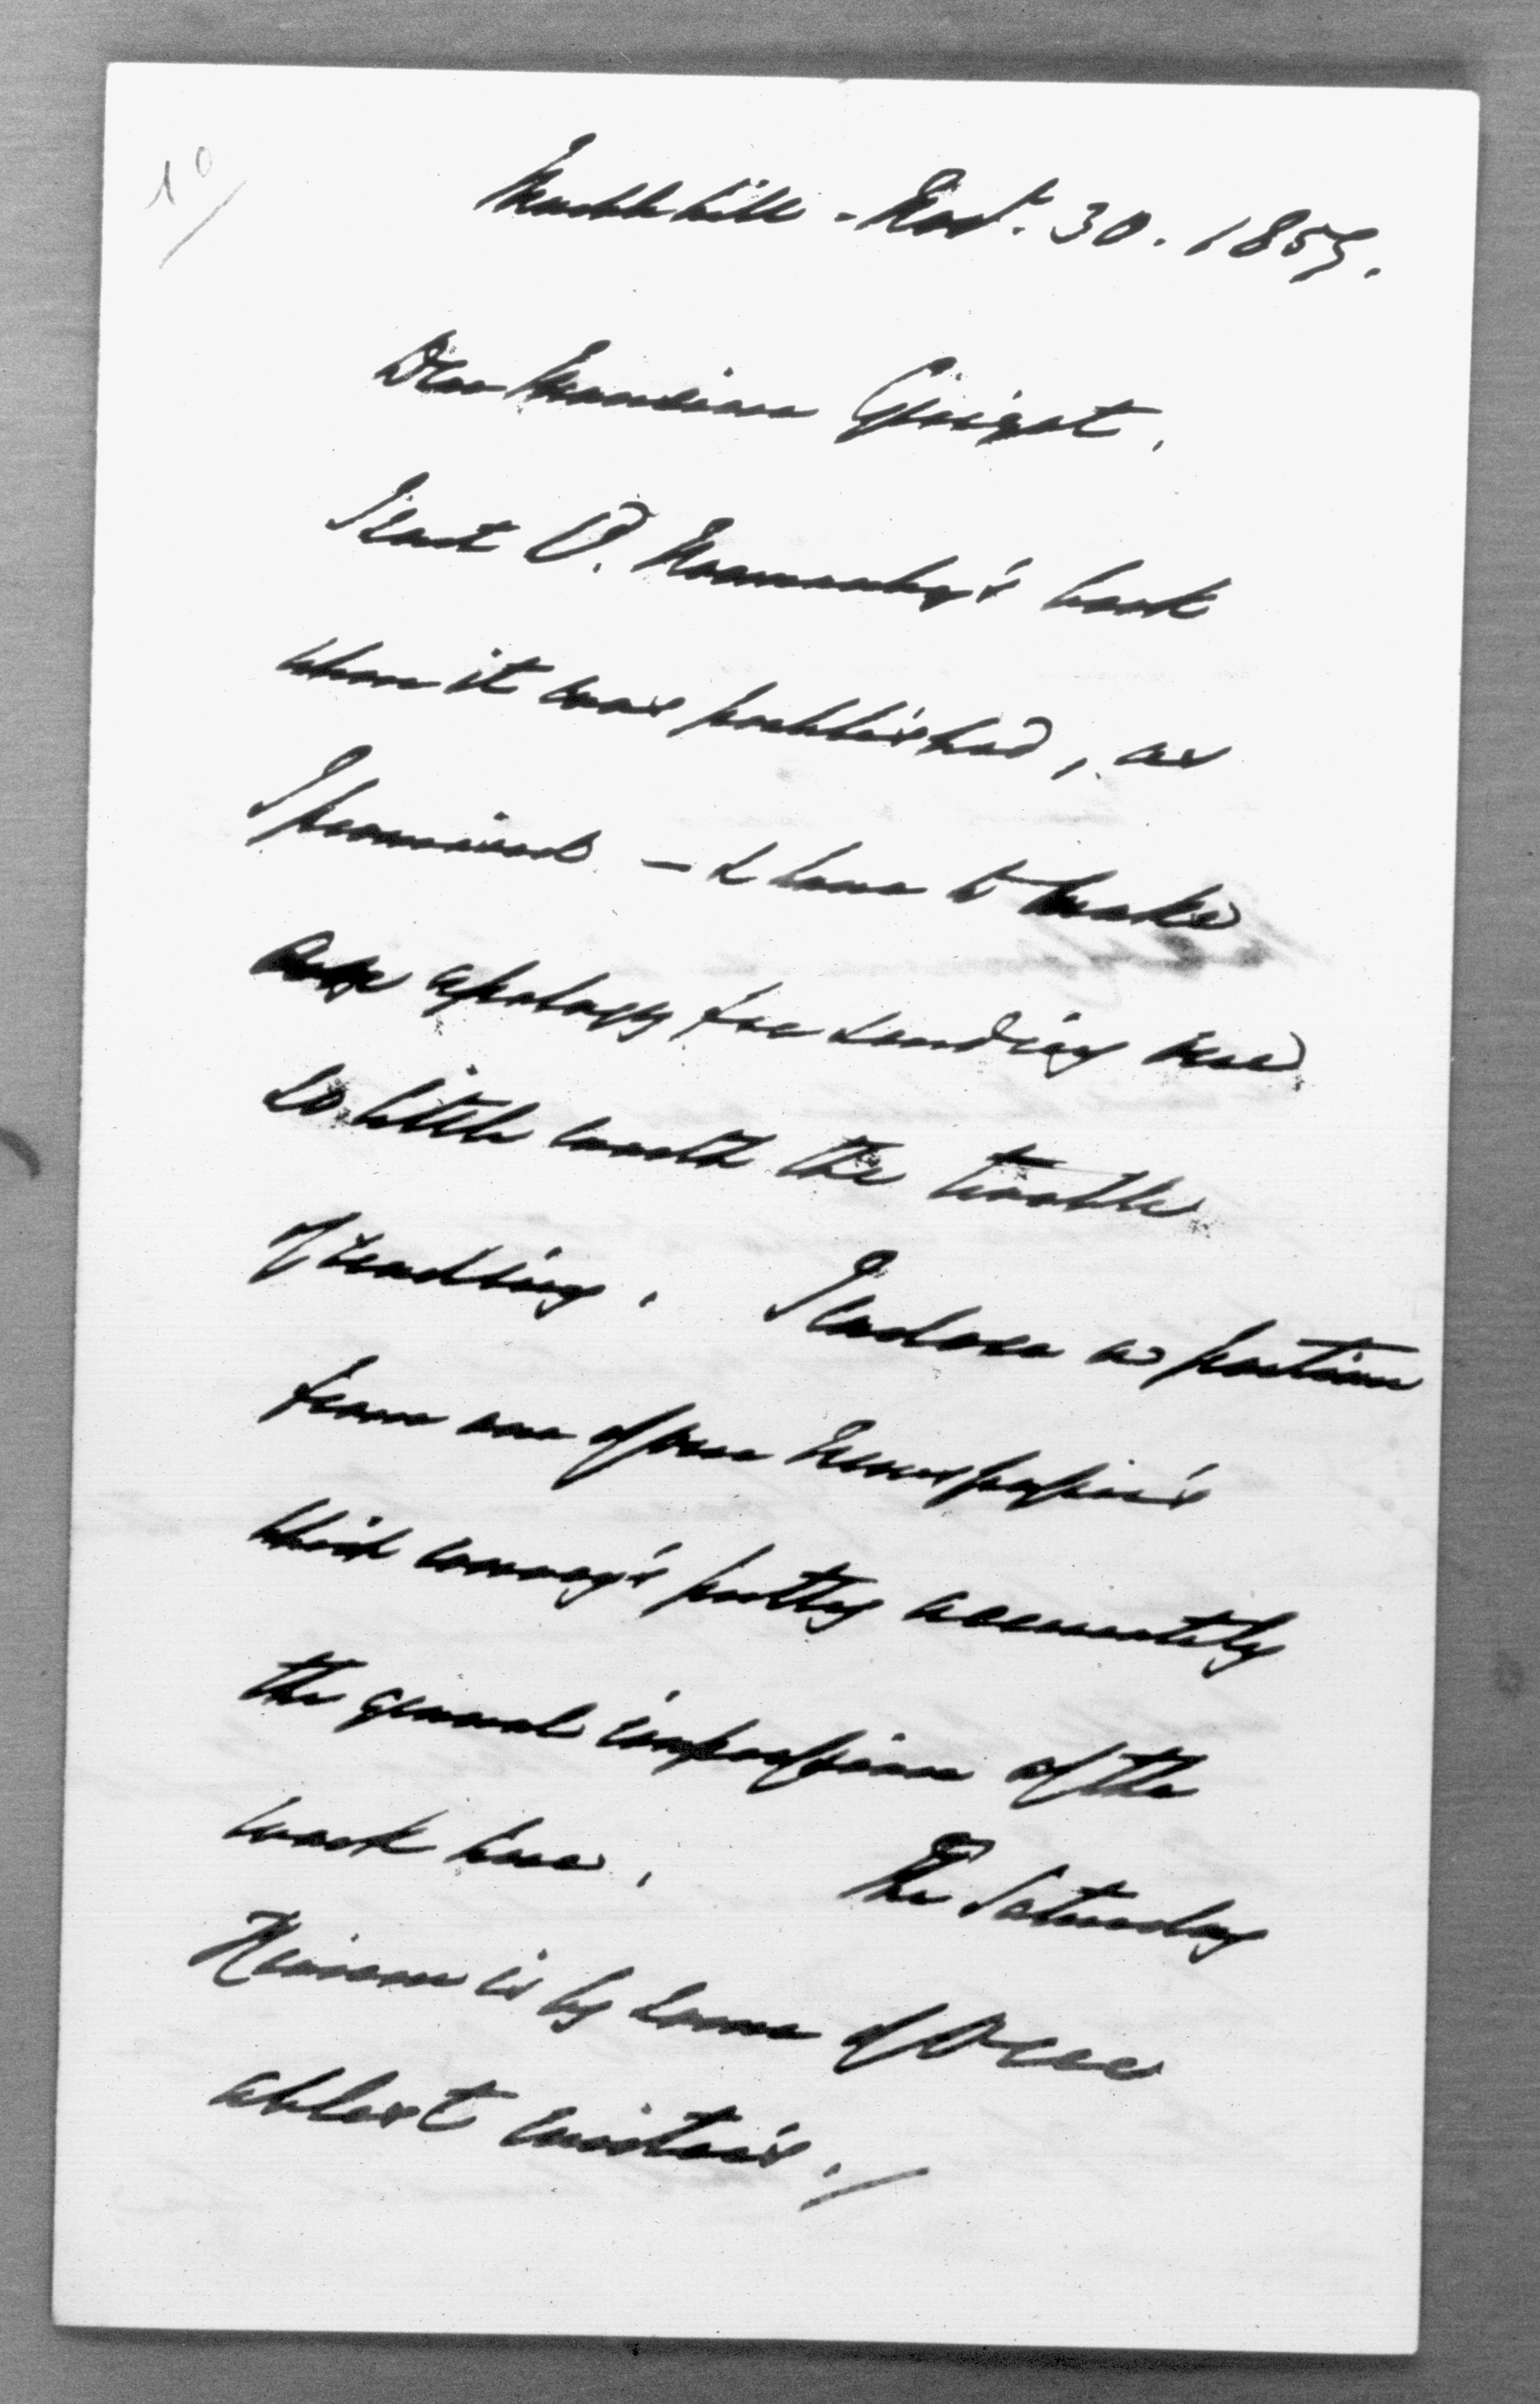 10
Marble hill - Nov. 30. 1857.
Dear Monsieur Guizot,
I sent Ld. Normanby's book
when it was published, as
I promised — & have to make
apology for sending one
so little worth the trouble
of reading. I enclose a portion
from one of our Newspapers
which conveys pretty accurately
the general impression of the
work here. The Saturday
Review is by some of our
ablest writers.